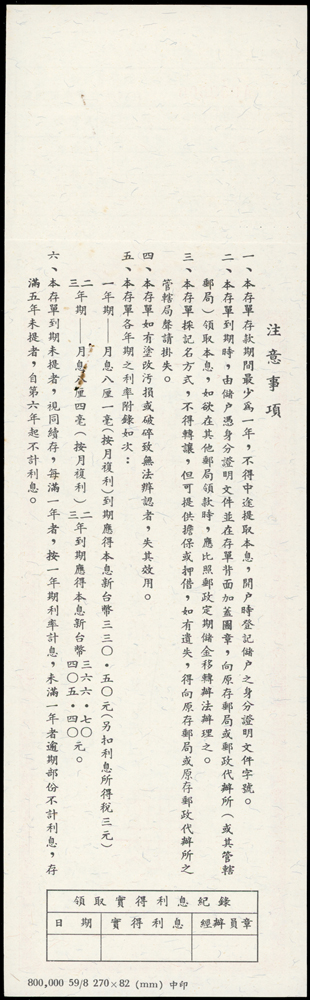 注意事項
一、本存單存款期間最少為一年，不得中途提取本息，開戶時登記儲戶之身分證明文件字號。
二、本存單到期時，由儲戶憑身分證明文件並在存單背面加蓋圖章，向原存郵局或郵政代辦所（或其管轄
郵局）領取本息，如欲在其他郵局領款時，應比照郵政定期儲金移轉辦法辦理之。
三、本存單採記名方式，不得轉讓，但可提供擔保或押借，如有遺失，得向原存郵局或原存郵政代辦所之
管轄局聲請掛失。
四、本存單如有塗改污損或破碎致無法辨認者，失其效用。
五、本存單各年期之利率附錄如次：
一年期——月息八厘一毫（按月複利）到期應得本息新台幣三三〇・五〇元（另扣利息所得稅三元）
二年期——月息厘四毫（按月複利）二年到期應得本息新台幣三六六・七〇元。
三年期 三 四〇五・四〇
六、本存單到期未提者，視同續存，每滿一年者，按一年期利率計息，未滿一年者逾期部份不計利息，存
滿五年未提者，自第六年起不計利息。
領取實得利息紀錄
日期 實得利息 經辦員章
800,000 59/8 270×82 (mm) 中印